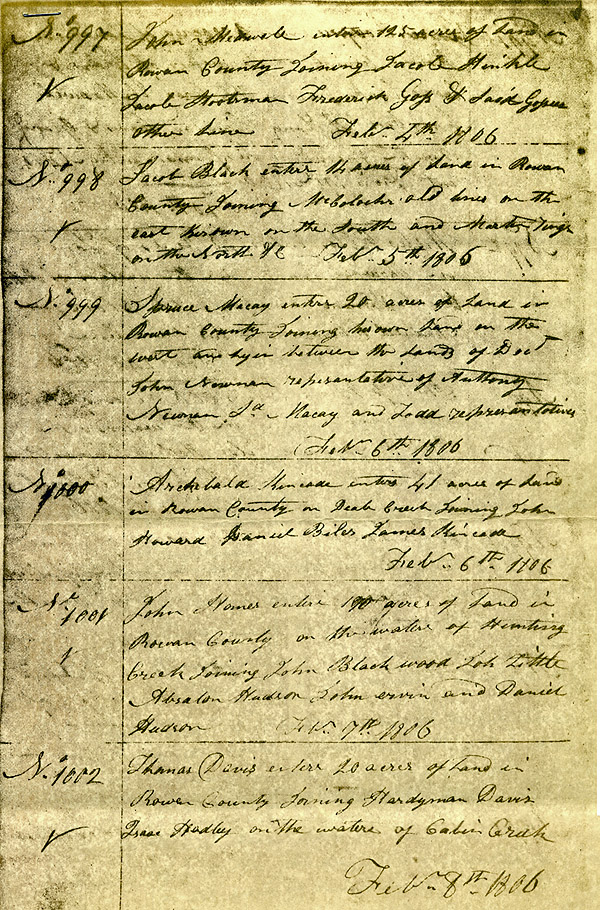 No 997 John enters 125 acres of Land in
Rowan County Joining Jacob Hinkle
Jacob Frederick Goss & Said Gosses
other line Febr 4th 1806
No 998 Jacob Black enters 14 acres of Land in Rowan
County Joining old line on the
east his own on the South and
on the North &c Febr 5th 1806
No 999 Spruce Macay enters 20 acres of Land in
Rowan County Joining his own Land on the
west and between the Lands of Doct
John Newnan representative of Anthony
Newnan Sd Macay and Todd representatives
Febr 6th 1806
No 1000 Archebald Kincade enters 41 acres of Land
in Rowan County on Creek Joining John
Howard Daniel Biles James Kincade
Febr 6th 1806
No 1001 John enters 100 acres of Land in
Rowan County on the waters of Hunting
Creek Joining John Blackwood Little
Absalon Hudson John ervin and Daniel
Hudson Febr 7th 1806
No 1002 Thomas Davis enters 20 acres of Land in
Rowan County Joining Hardyman Davis
Isaac Hadley on the waters of Cabin Creek
Febr 8th 1806